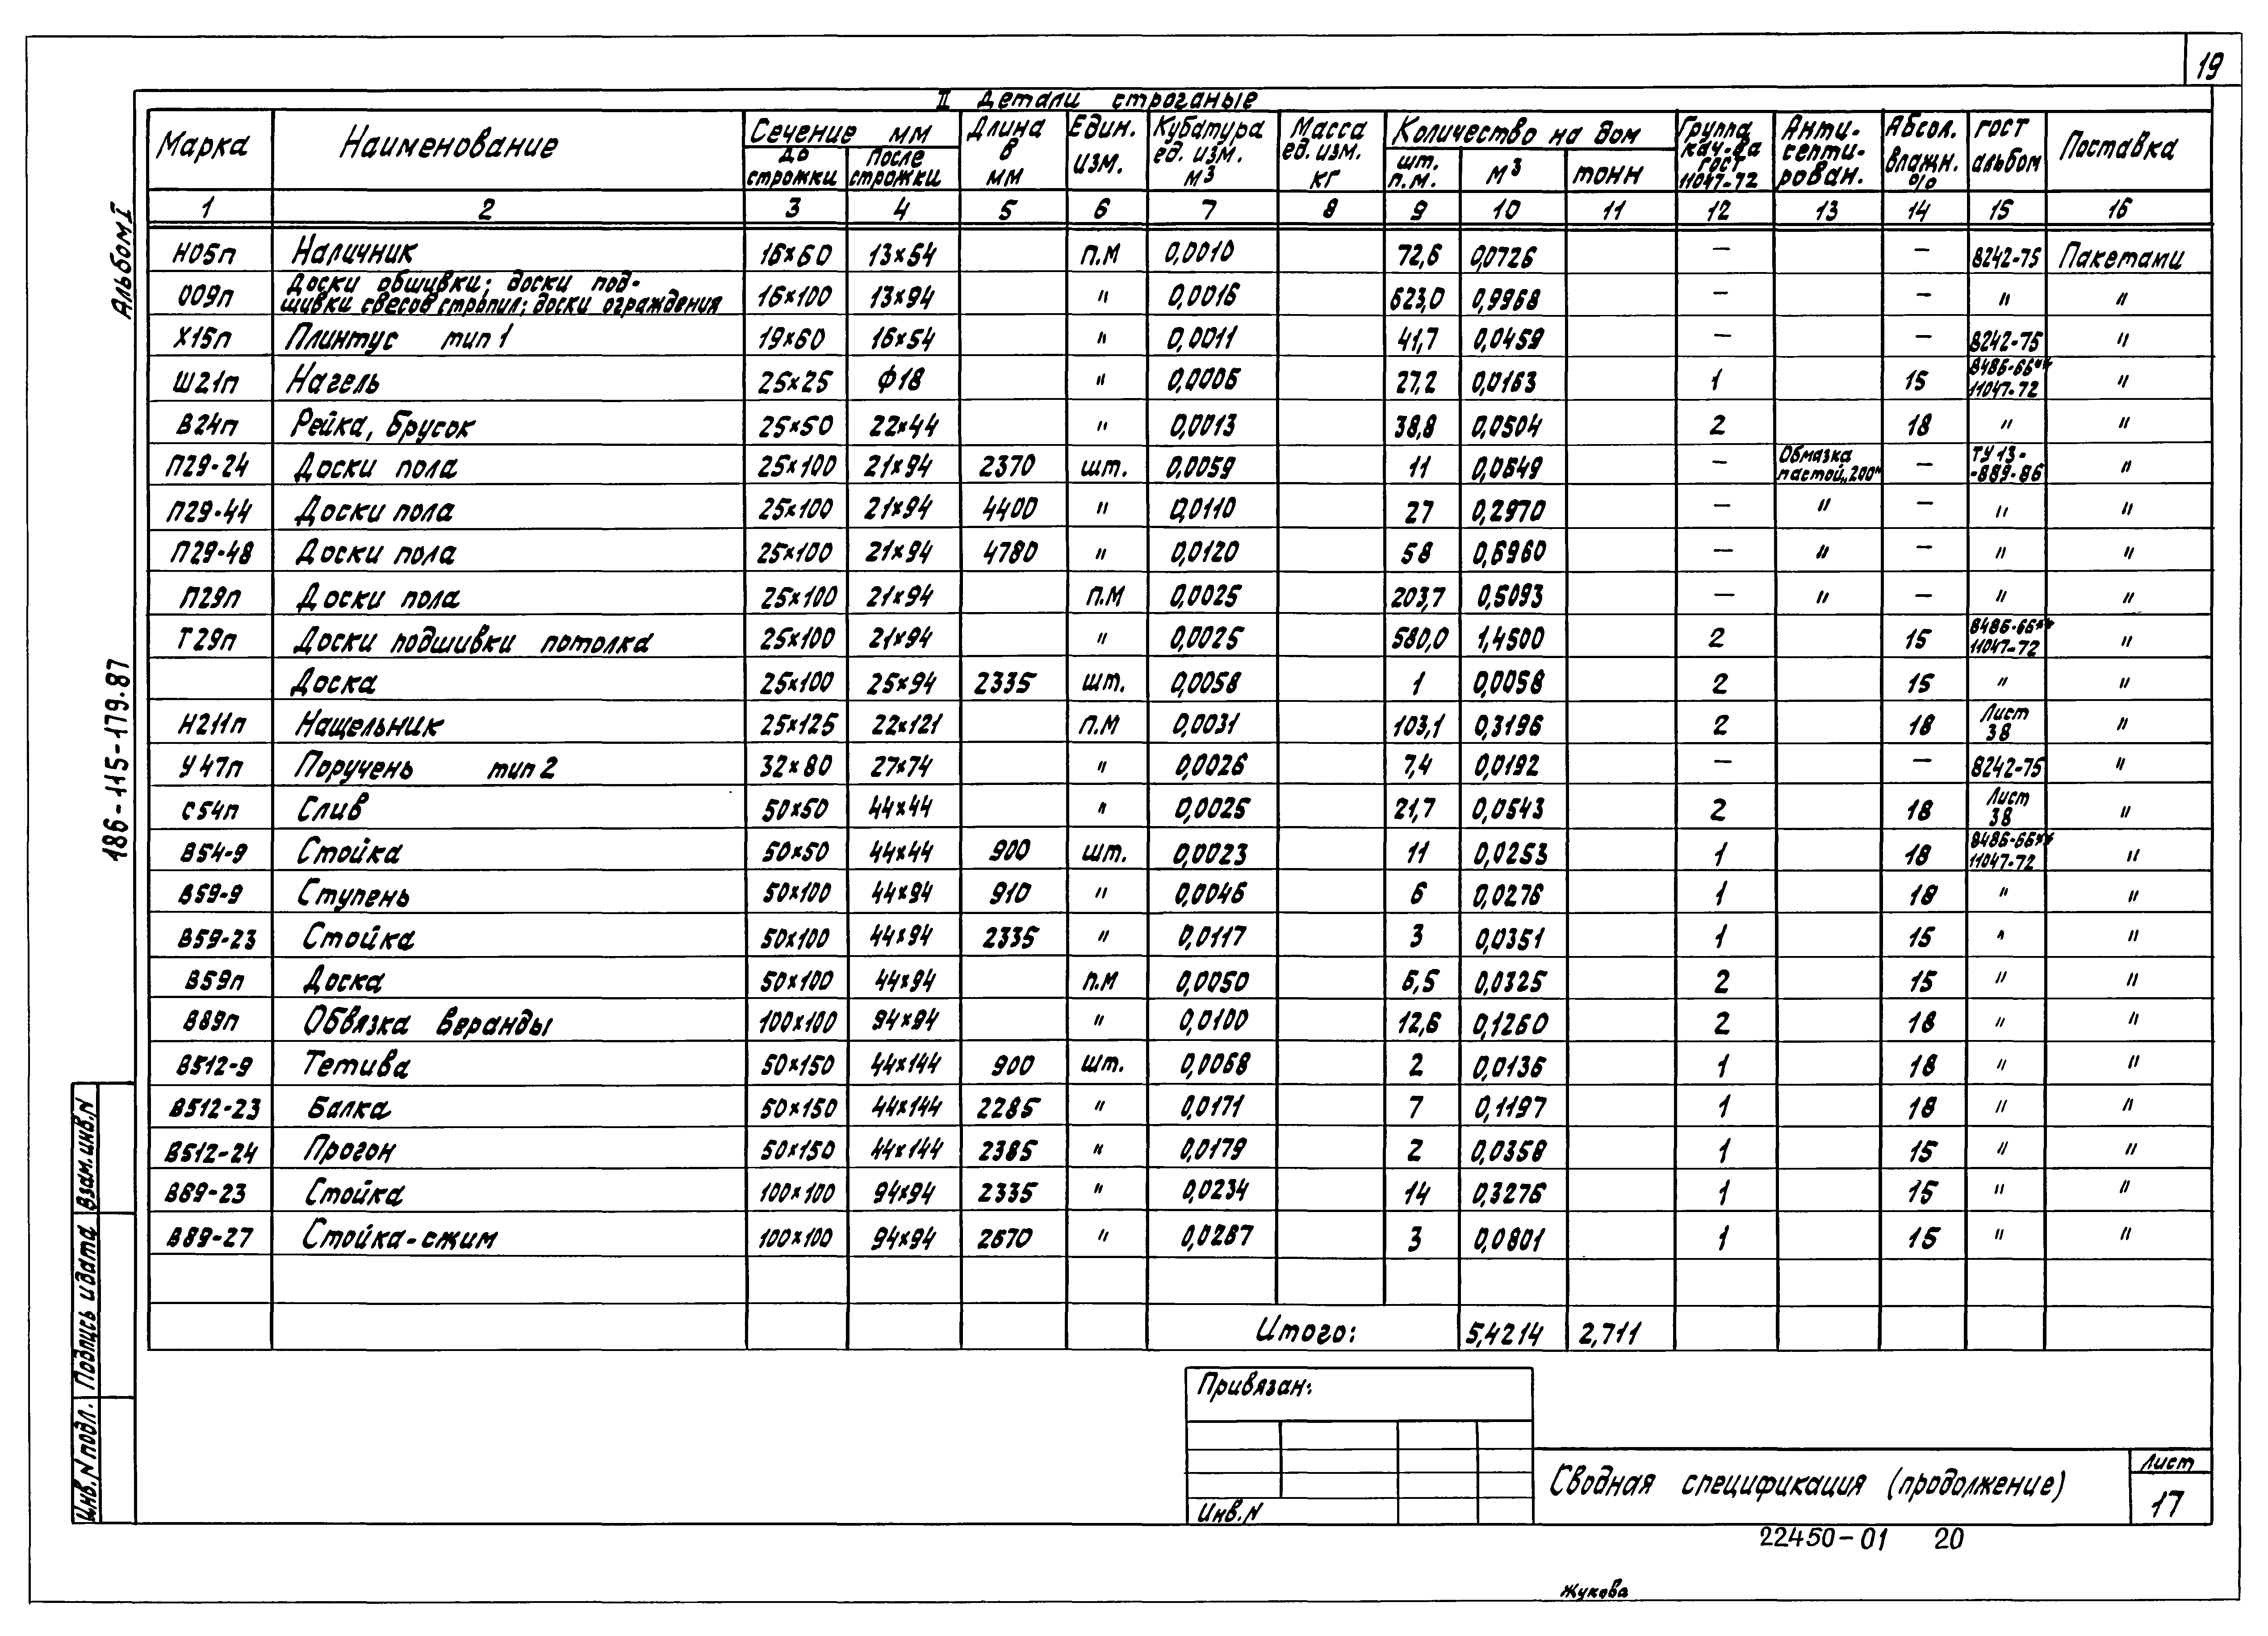 19
II Детали строганые
Марка | Наименование | Сечение мм | Длина в мм | Един. изм. | Кубатура ед. изм. м³ | Масса ед. изм. кг | Количество на дом | Группа кач-ва гост 11047-72 | Анти-септи-рован. | Абсол. влажн. % | гост альбом | Поставка
до строжки | После строжки | шт. п.м. | м³ | тонн
1 | 2 | 3 | 4 | 5 | 6 | 7 | 8 | 9 | 10 | 11 | 12 | 13 | 14 | 15 | 16
Н05п | Наличник | 16×60 | 13×54 | п.м | 0,0010 | 72,6 | 0,0726 | — | — | 8242-75 | Пакетами
О09п | Доски обшивки; доски под-шивки свесов стропил; доски ограждения | 16×100 | 13×94 | " | 0,0016 | 623,0 | 0,9968 | — | — | " | "
Х15п | Плинтус тип 1 | 19×60 | 16×54 | " | 0,0011 | 41,7 | 0,0459 | — | — | 8242-75 | "
Ш21п | Нагель | 25×25 | ф18 | " | 0,0006 | 27,2 | 0,0163 | 1 | 15 | 8486-66** 11047-72 | "
В24п | Рейка, Брусок | 25×50 | 22×44 | " | 0,0013 | 38,8 | 0,0504 | 2 | 18 | " | "
П29-24 | Доски пола | 25×100 | 21×94 | 2370 | шт. | 0,0059 | 11 | 0,0649 | — | Обмазка пастой „200" | — | ТУ 13-889-86 | "
П29-44 | Доски пола | 25×100 | 21×94 | 4400 | " | 0,0110 | 27 | 0,2970 | — | " | — | " | "
П29-48 | Доски пола | 25×100 | 21×94 | 4780 | " | 0,0120 | 58 | 0,6960 | — | " | — | " | "
П29п | Доски пола | 25×100 | 21×94 | п.м | 0,0025 | 203,7 | 0,5093 | — | " | — | " | "
Т29п | Доски подшивки потолка | 25×100 | 21×94 | " | 0,0025 | 580,0 | 1,4500 | 2 | 15 | 8486-66** 11047-72 | "
Доска | 25×100 | 25×94 | 2335 | шт. | 0,0058 | 1 | 0,0058 | 2 | 15 | " | "
Н211п | Нащельник | 25×125 | 22×121 | п.м | 0,0031 | 103,1 | 0,3196 | 2 | 18 | Лист 38 | "
У47п | Поручень тип 2 | 32×80 | 27×74 | " | 0,0026 | 7,4 | 0,0192 | — | — | 8242-75 | "
С54п | Слив | 50×50 | 44×44 | " | 0,0025 | 21,7 | 0,0543 | 2 | 18 | Лист 38 | "
В54-9 | Стойка | 50×50 | 44×44 | 900 | шт. | 0,0023 | 11 | 0,0253 | 1 | 18 | 8486-66** 11047-72 | "
В59-9 | Ступень | 50×100 | 44×94 | 910 | " | 0,0046 | 6 | 0,0276 | 1 | 18 | " | "
В59-23 | Стойка | 50×100 | 44×94 | 2335 | " | 0,0117 | 3 | 0,0351 | 1 | 15 | " | "
В59п | Доска | 50×100 | 44×94 | п.м | 0,0050 | 6,5 | 0,0325 | 2 | 15 | " | "
В89п | Обвязка веранды | 100×100 | 94×94 | " | 0,0100 | 12,6 | 0,1260 | 2 | 18 | " | "
В512-9 | Тетива | 50×150 | 44×144 | 900 | шт. | 0,0068 | 2 | 0,0136 | 1 | 18 | " | "
В512-23 | Балка | 50×150 | 44×144 | 2285 | " | 0,0171 | 7 | 0,1197 | 1 | 18 | " | "
В512-24 | Прогон | 50×150 | 44×144 | 2385 | " | 0,0179 | 2 | 0,0358 | 1 | 15 | " | "
В89-23 | Стойка | 100×100 | 94×94 | 2335 | " | 0,0234 | 14 | 0,3276 | 1 | 15 | " | "
В89-27 | Стойка-сжим | 100×100 | 94×94 | 2670 | " | 0,0267 | 3 | 0,0801 | 1 | 15 | " | "
Итого: | 5,4214 | 2,711
Альбом I
186-115-179.87
Взам.инв.N
Подпись и дата
Инв.N подл.
Привязан:
Инв.N
Сводная спецификация (продолжение)
Лист
17
22450-01 20
Жукова